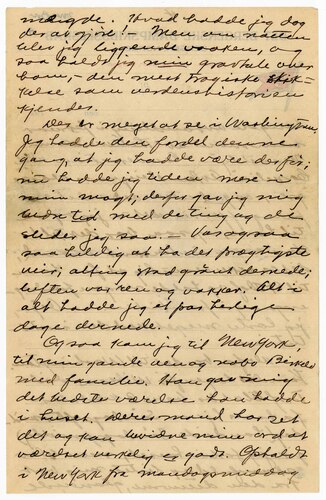 mængde. Hvad hadde jeg dog
der at gjøre. — Men om natten
blev jeg liggende vaaken, og
saa hadde jeg min graatetur over
ham, — den mest tragiske skik-
kelse som verdenshistorien
kjender.
Der er meget at se i Washington,
Jeg hadde den fordel denne
gang, at jeg hadde være der før;
nu hadde jeg tiden mere i
min magt; derfor gav jeg mig
bedre tid med de ting og de
steder jeg saa. — Var ogsaa
saa heldig at ha det prægtigste
veir; alting stod grønt dernede;
luften var ren og vakker. Alt i
alt hadde jeg et par deilige
dage dernede.
Og saa kom jeg til New York,
til min gamle ven og nabo
med familie. Han gav mig
det bedste værelse han hadde
i huset. Deres mand har set
det og kan bevidne mine ord at
værelset virkelig er godt. Opholdt
i New York fra mandags middag